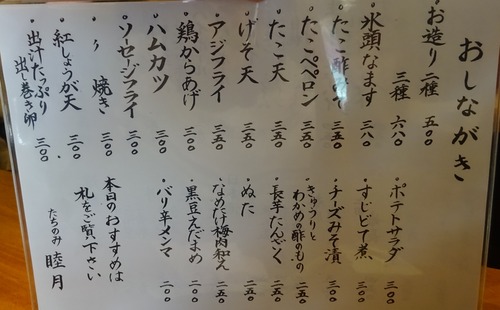 おしながき
・お造り 二種 五〇〇
三種 六八〇
・氷頭なます 三八〇
・たこ酢みそ 三五〇
・たこペペロン 三五〇
・たこ天 三五〇
・げそ天 三五〇
・アジフライ 三五〇
・鶏からあげ 三〇〇
・ハムカツ 三〇〇
・ソセージフライ 三〇〇
・〃 焼き 三〇〇
・紅しょうが天 三〇〇
・出汁たっぷり
出し巻き卵 三〇〇
・ポテトサラダ 三〇〇
・すじどて煮 三〇〇
・チーズみそ漬 三〇〇
・きゅうりと
わかめの酢のもの 二五〇
・長芋たんざく 二五〇
・ぬた 二五〇
・なめたけ梅肉和え 二五〇
・黒豆えだまめ 二〇〇
・バリ辛メンマ 二〇〇
本日のおすすめは
札をご覧下さい
たちのみ 睦月